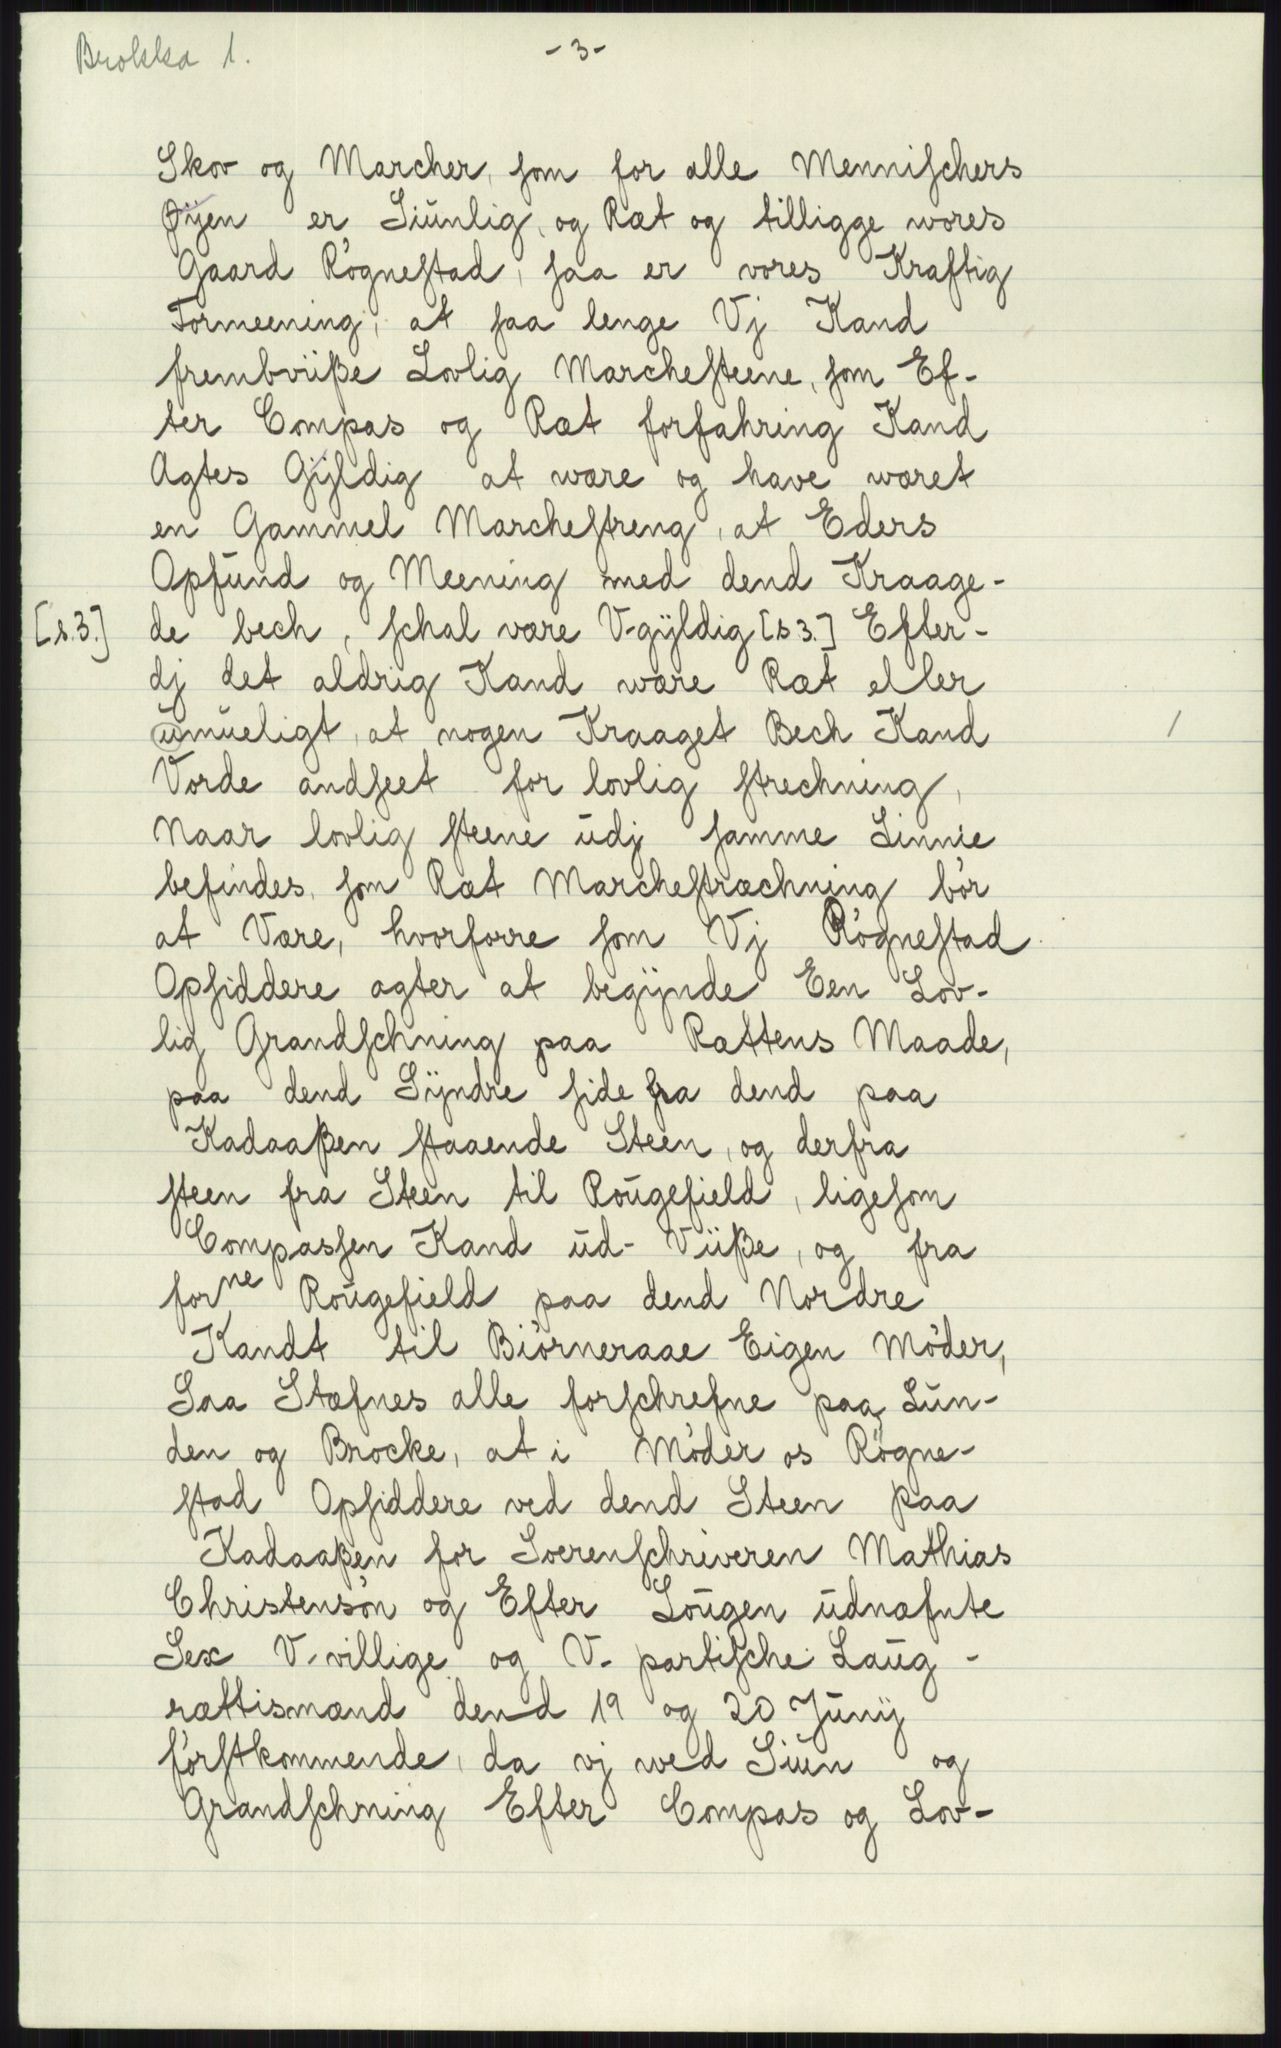 Brokka 1.
- 3 -
Skov og Marcher, som for alle Mennischers
Øÿen er Siunlig, og Ræt og tilligge wores
Gaard Rògnestad, saa er vores Kraftig
Formeening, at saa lenge Vj Kand
frembvüße Lovlig Marchesteene, som Ef-
ter Compas og Ræt forfahring Kand
Agtes Gÿldig at wære og have wæret
en Gammel Marchestreng, at Eders
Opfund og Meening med dend Kraage-
[s.3.] de bech, schal være V-gÿldig [s 3.] Efter-
dj det aldrig Kand wære Ræt eller
umueligt, at nogen Kraaget Bech Kand
Vorde andseet for lovlig strechning,
Naar lovlig steene udj samme Linnie
befindes, som Ræt Marchestræchning bòr
at Være, hvorforre som Vj Rògnestad
Opsiddere agter at begÿnde Een Lov-
lig Grandschning paa Rættens Maade,
paa dend Sÿndre side fra dend paa
Kadaaßen staaende Steen, og derfra
steen fra Steen til Rougefield, ligesom
Compassen Kand ud- Vüße, og fra
forne Rougefield paa dend Nordre
Kandt til Biòrneraae Eigen Mòder,
Saa Stæfnes alle forschrefne paa Lun-
den og Brocke, at i Mòder os Rògne-
stad Opsiddere ved dend Steen paa
Kadaaßen for Soerenschriveren Mathias
Christensòn og Efter Lougen udnæfnte
Sex V-villige og V- partische Laug-
rættismænd dend 19 og 20 Junij
fòrstkommende, da vj wed Siun og
Grandschning Efter Compas og Lov-